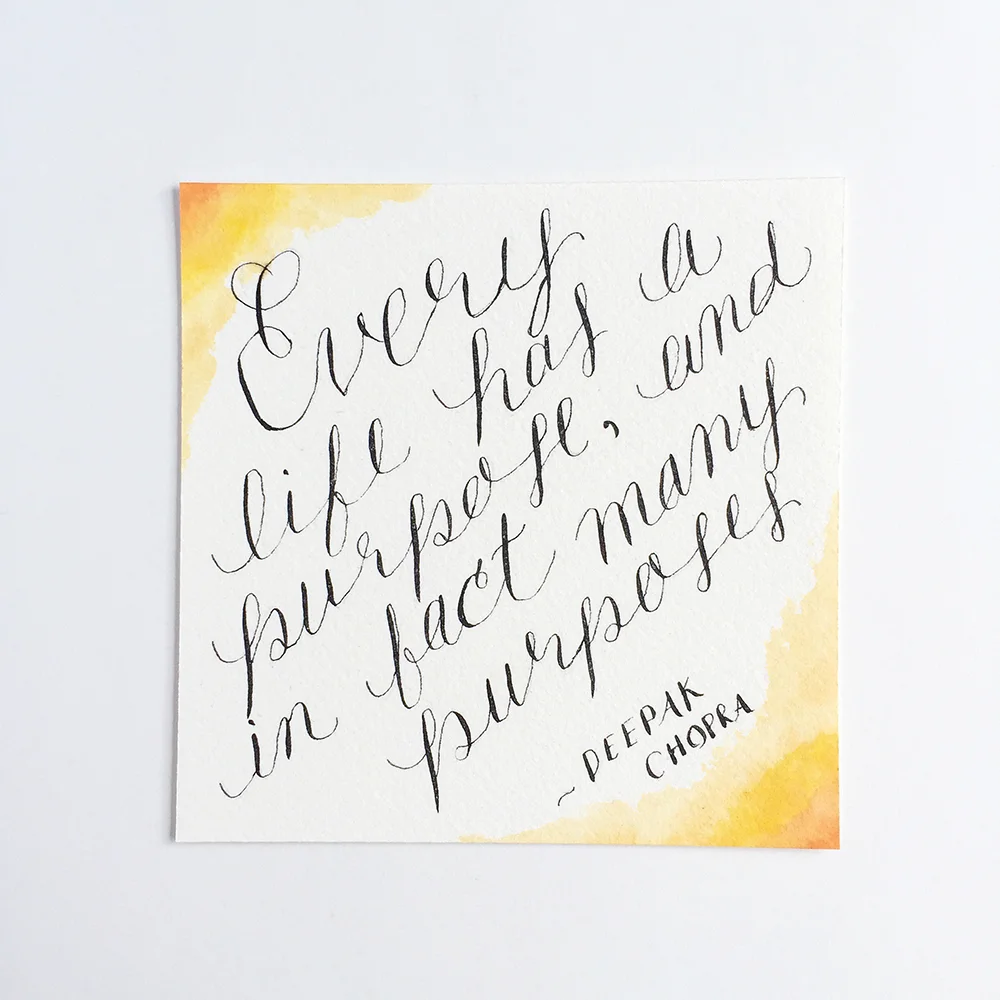 Every
life has a
purpose, and
in fact many
purposes
~ DEEPAK
CHOPRA